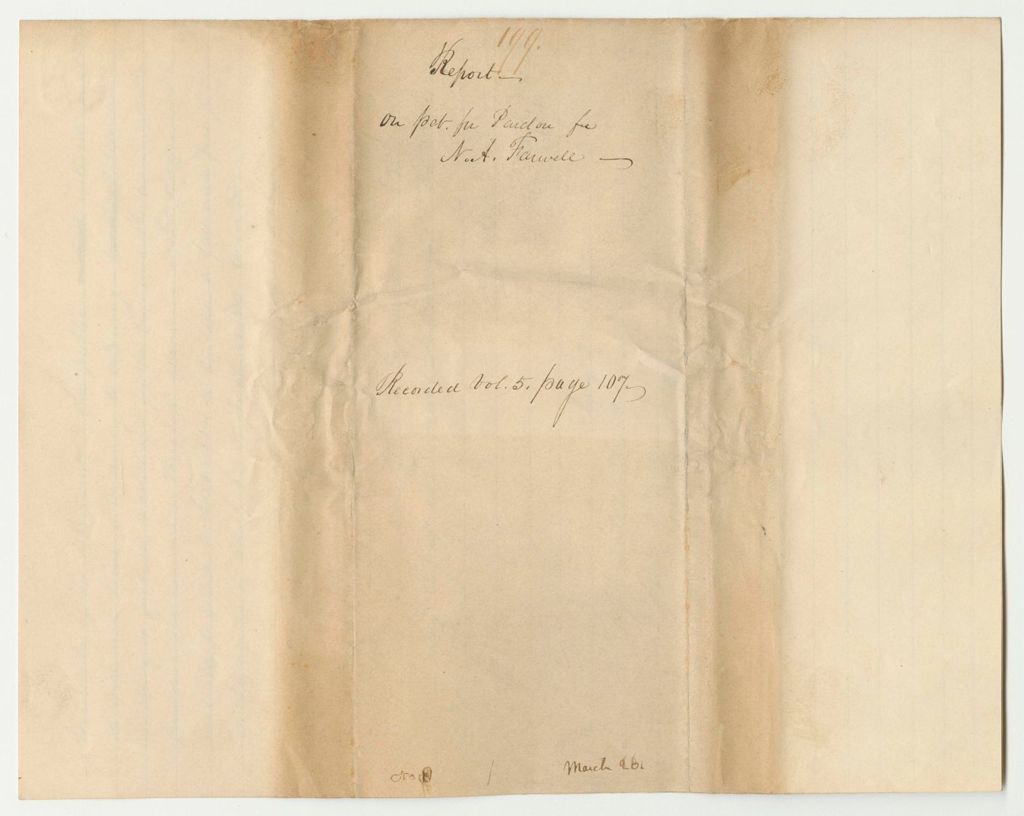 199.
Report
on pet. for Pardon for
N. A. Farwell
Recorded Vol. 5. page 107
No
March 26.